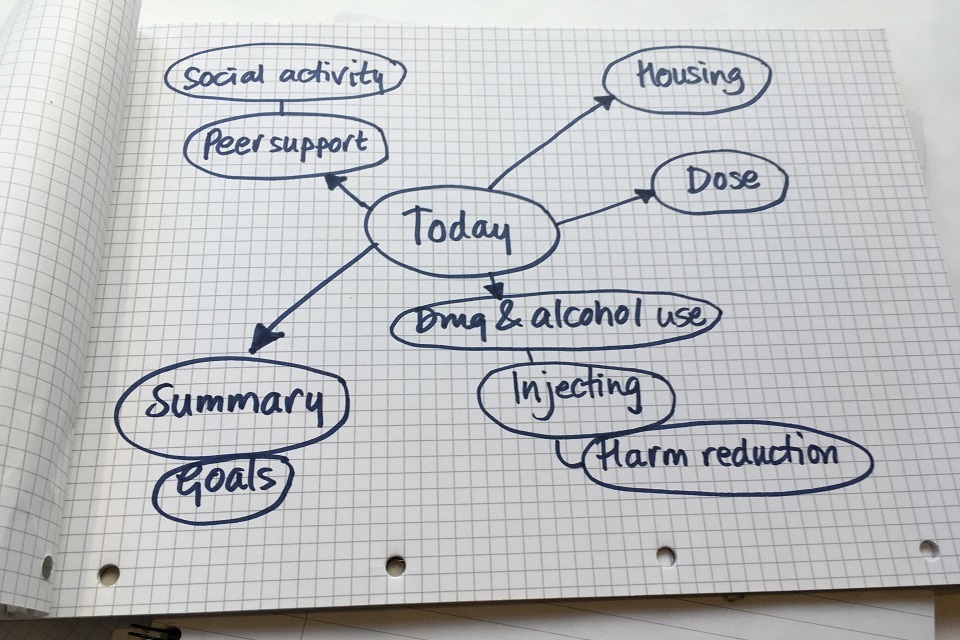 Social activity
Housing
Peer support
Dose
Today
Drug & alcohol use
Injecting
Summary
Harm reduction
Goals